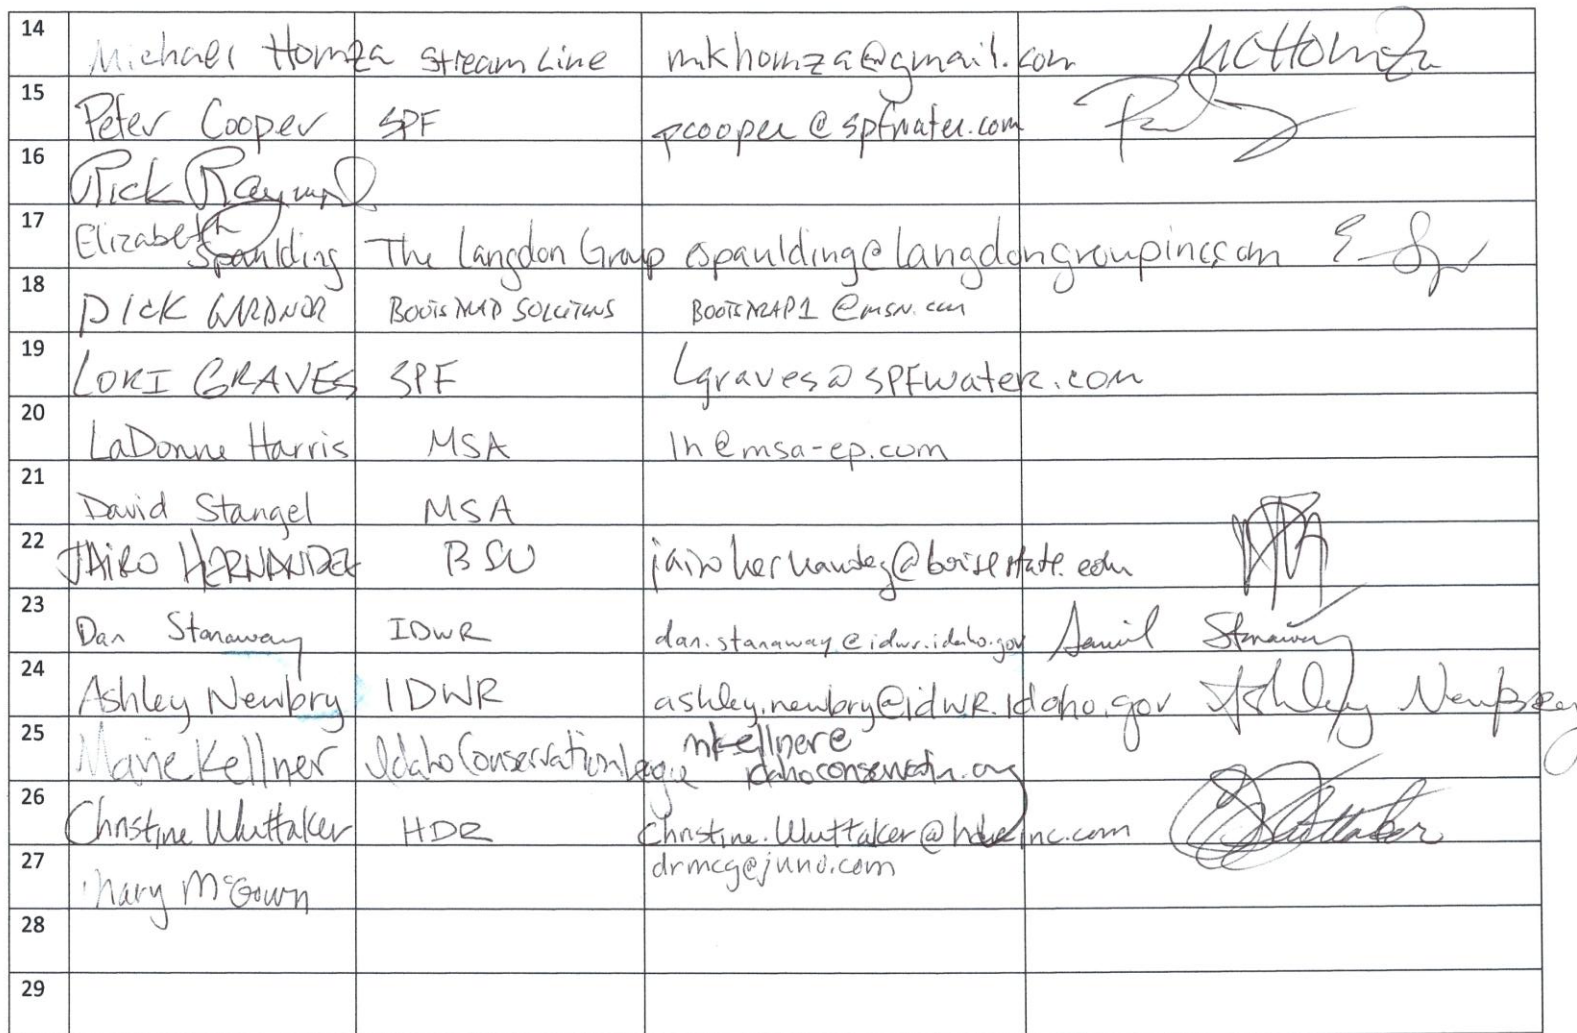 14 Michael Homza Streamline mkhomza@gmail.com MCHomza
15 Peter Cooper SPF pcooper@spfwater.com
16 Rick Raymond
17 Elizabeth Spaulding The Langdon Group espaulding@langdongroupinc.com
18 DICK GARDNER BOOTSTRAP SOLUTIONS BOOTSTRAP1@msn.com
19 LORI GRAVES SPF Lgraves@SPFwater.com
20 LaDonne Harris MSA lh@msa-ep.com
21 David Stangel MSA
22 JAIRO HERNANDEZ BSU jairohernandez@boisestate.edu
23 Dan Stanaway IDWR dan.stanaway@idwr.idaho.gov Daniel Stanaway
24 Ashley Newbry IDWR ashley.newbry@idwR.Idaho.gov Ashley Newbry
25 Marie Kellner Idaho Conservation League mkellner@
idahoconservation.org
26 Christine Whittaker HDR Christine.Whittaker@hdrinc.com
27 Mary McGown drmcg@juno.com
28
29